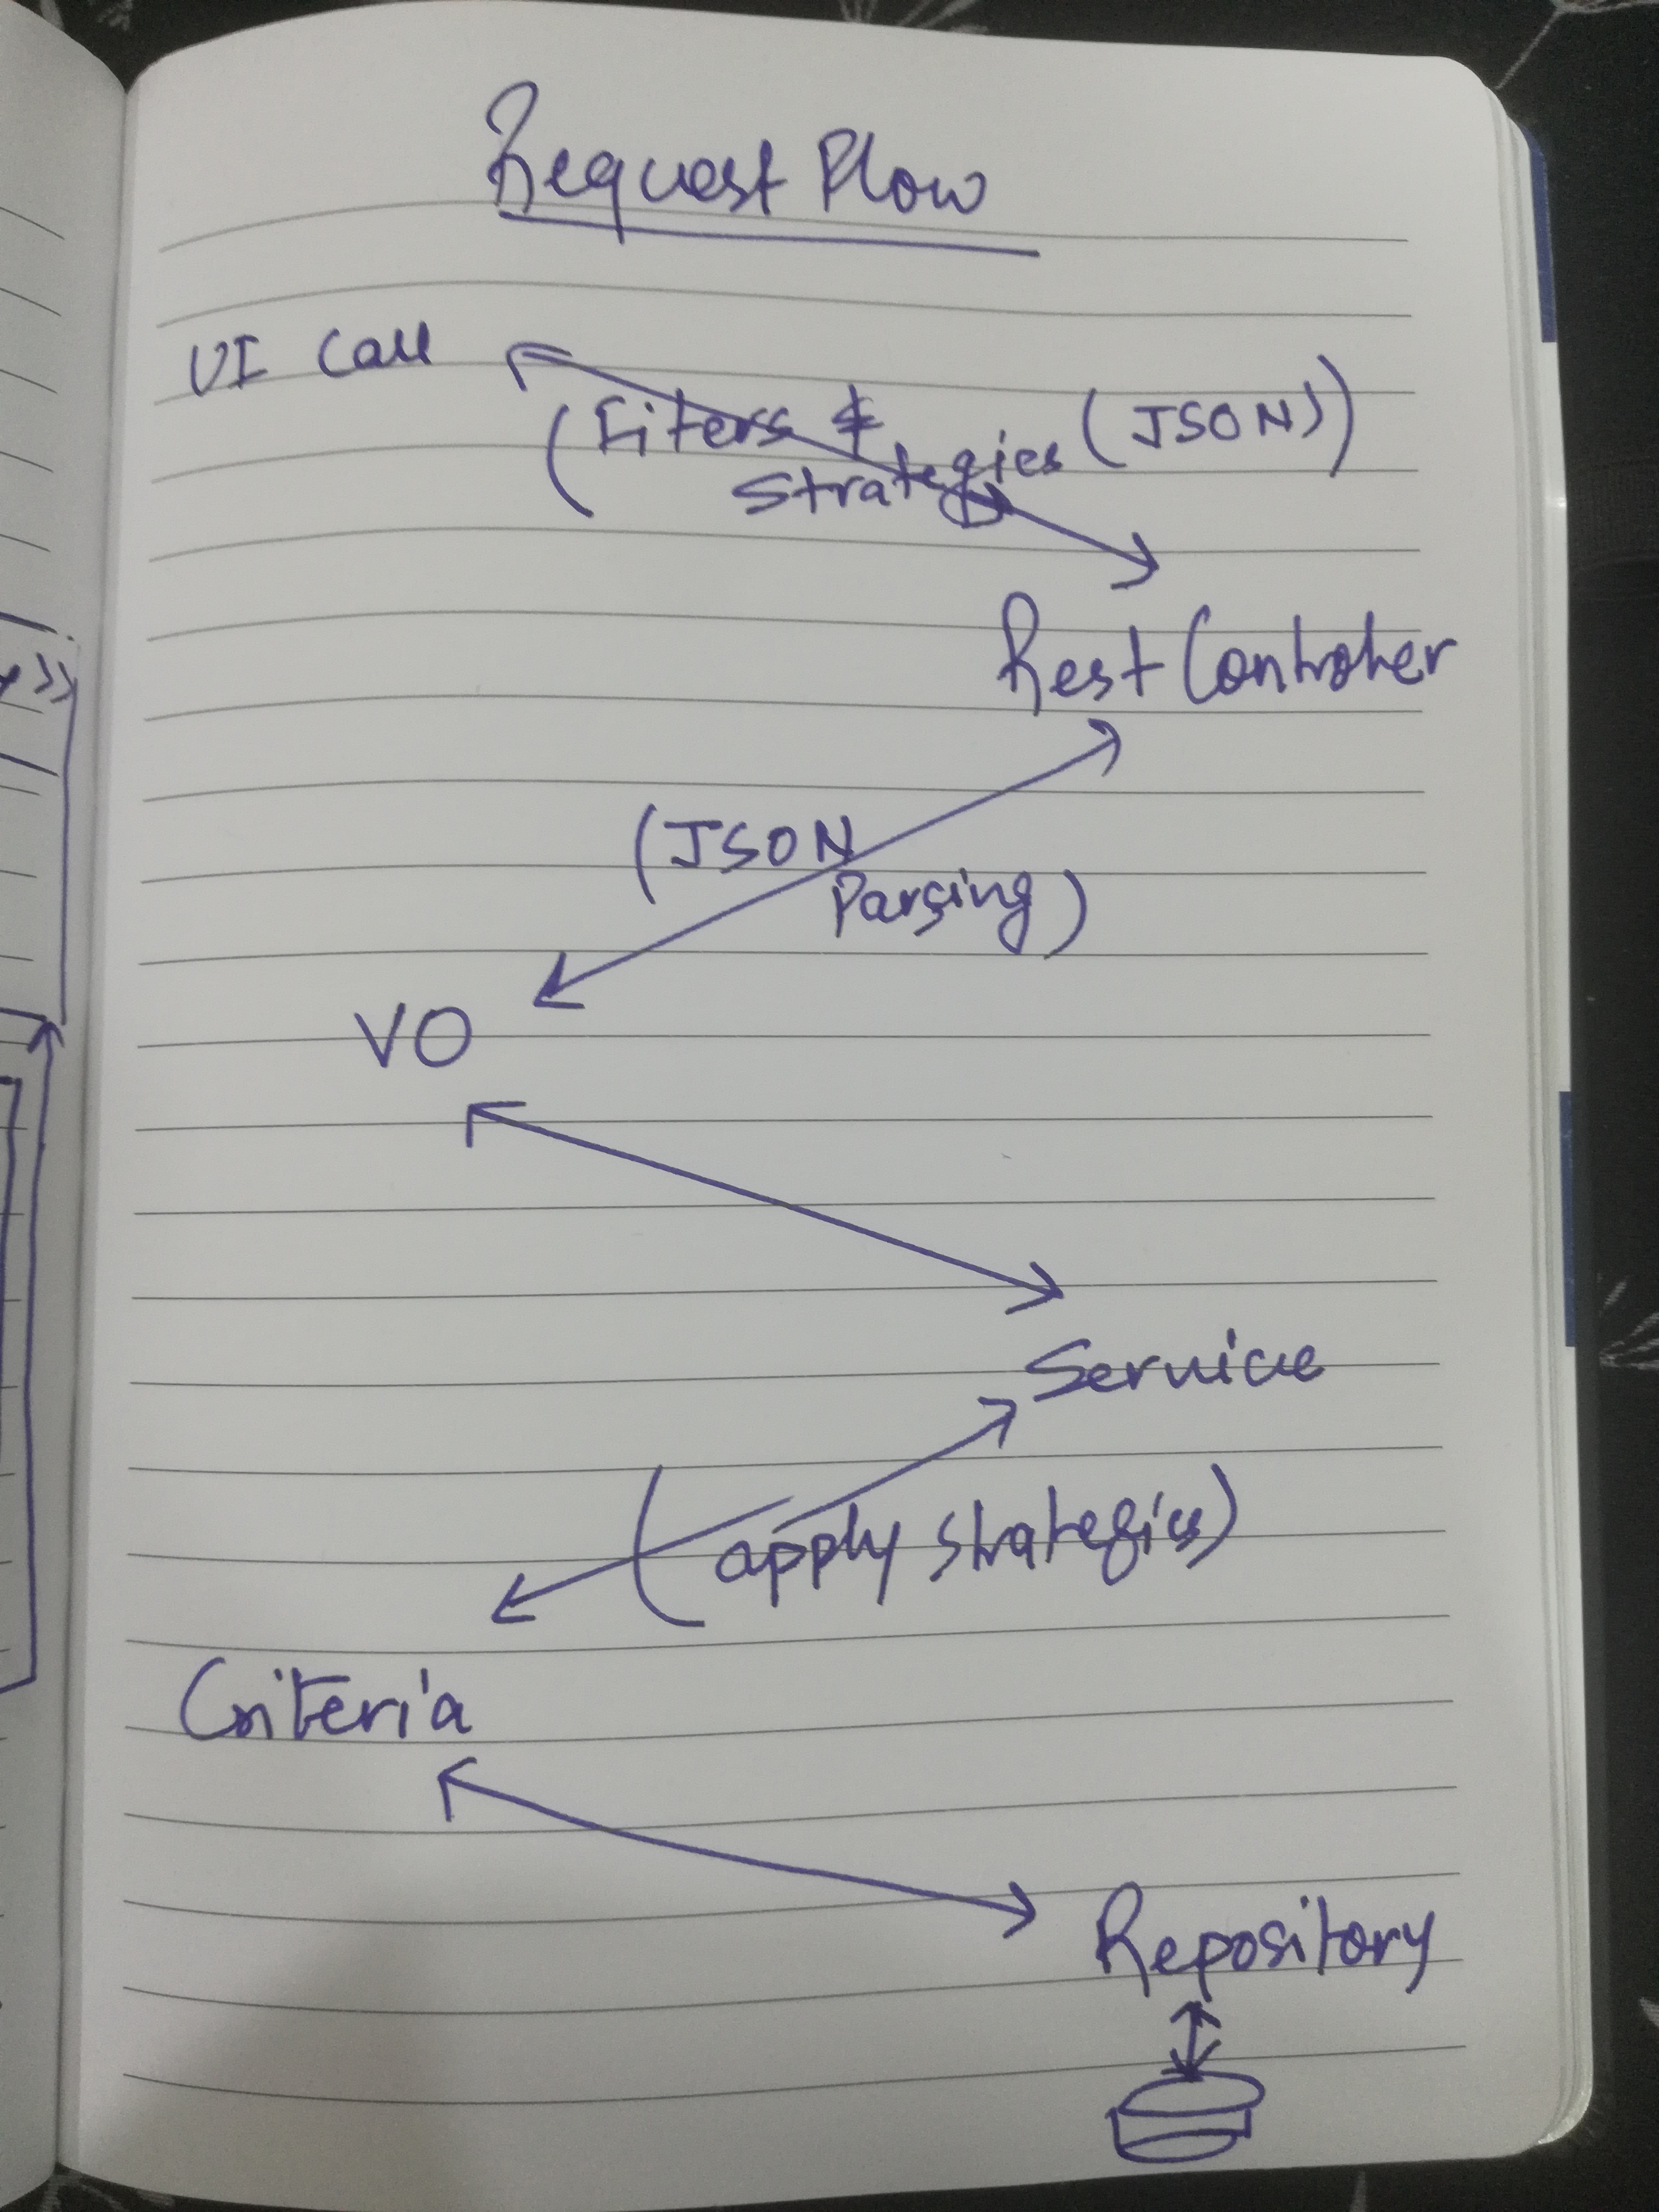 Request Flow
UI Call
(Fiters &
Strategies (JSON))
Rest Controller
(JSON
Parsing)
VO
Service
(apply strategies)
Criteria
Repository
>>